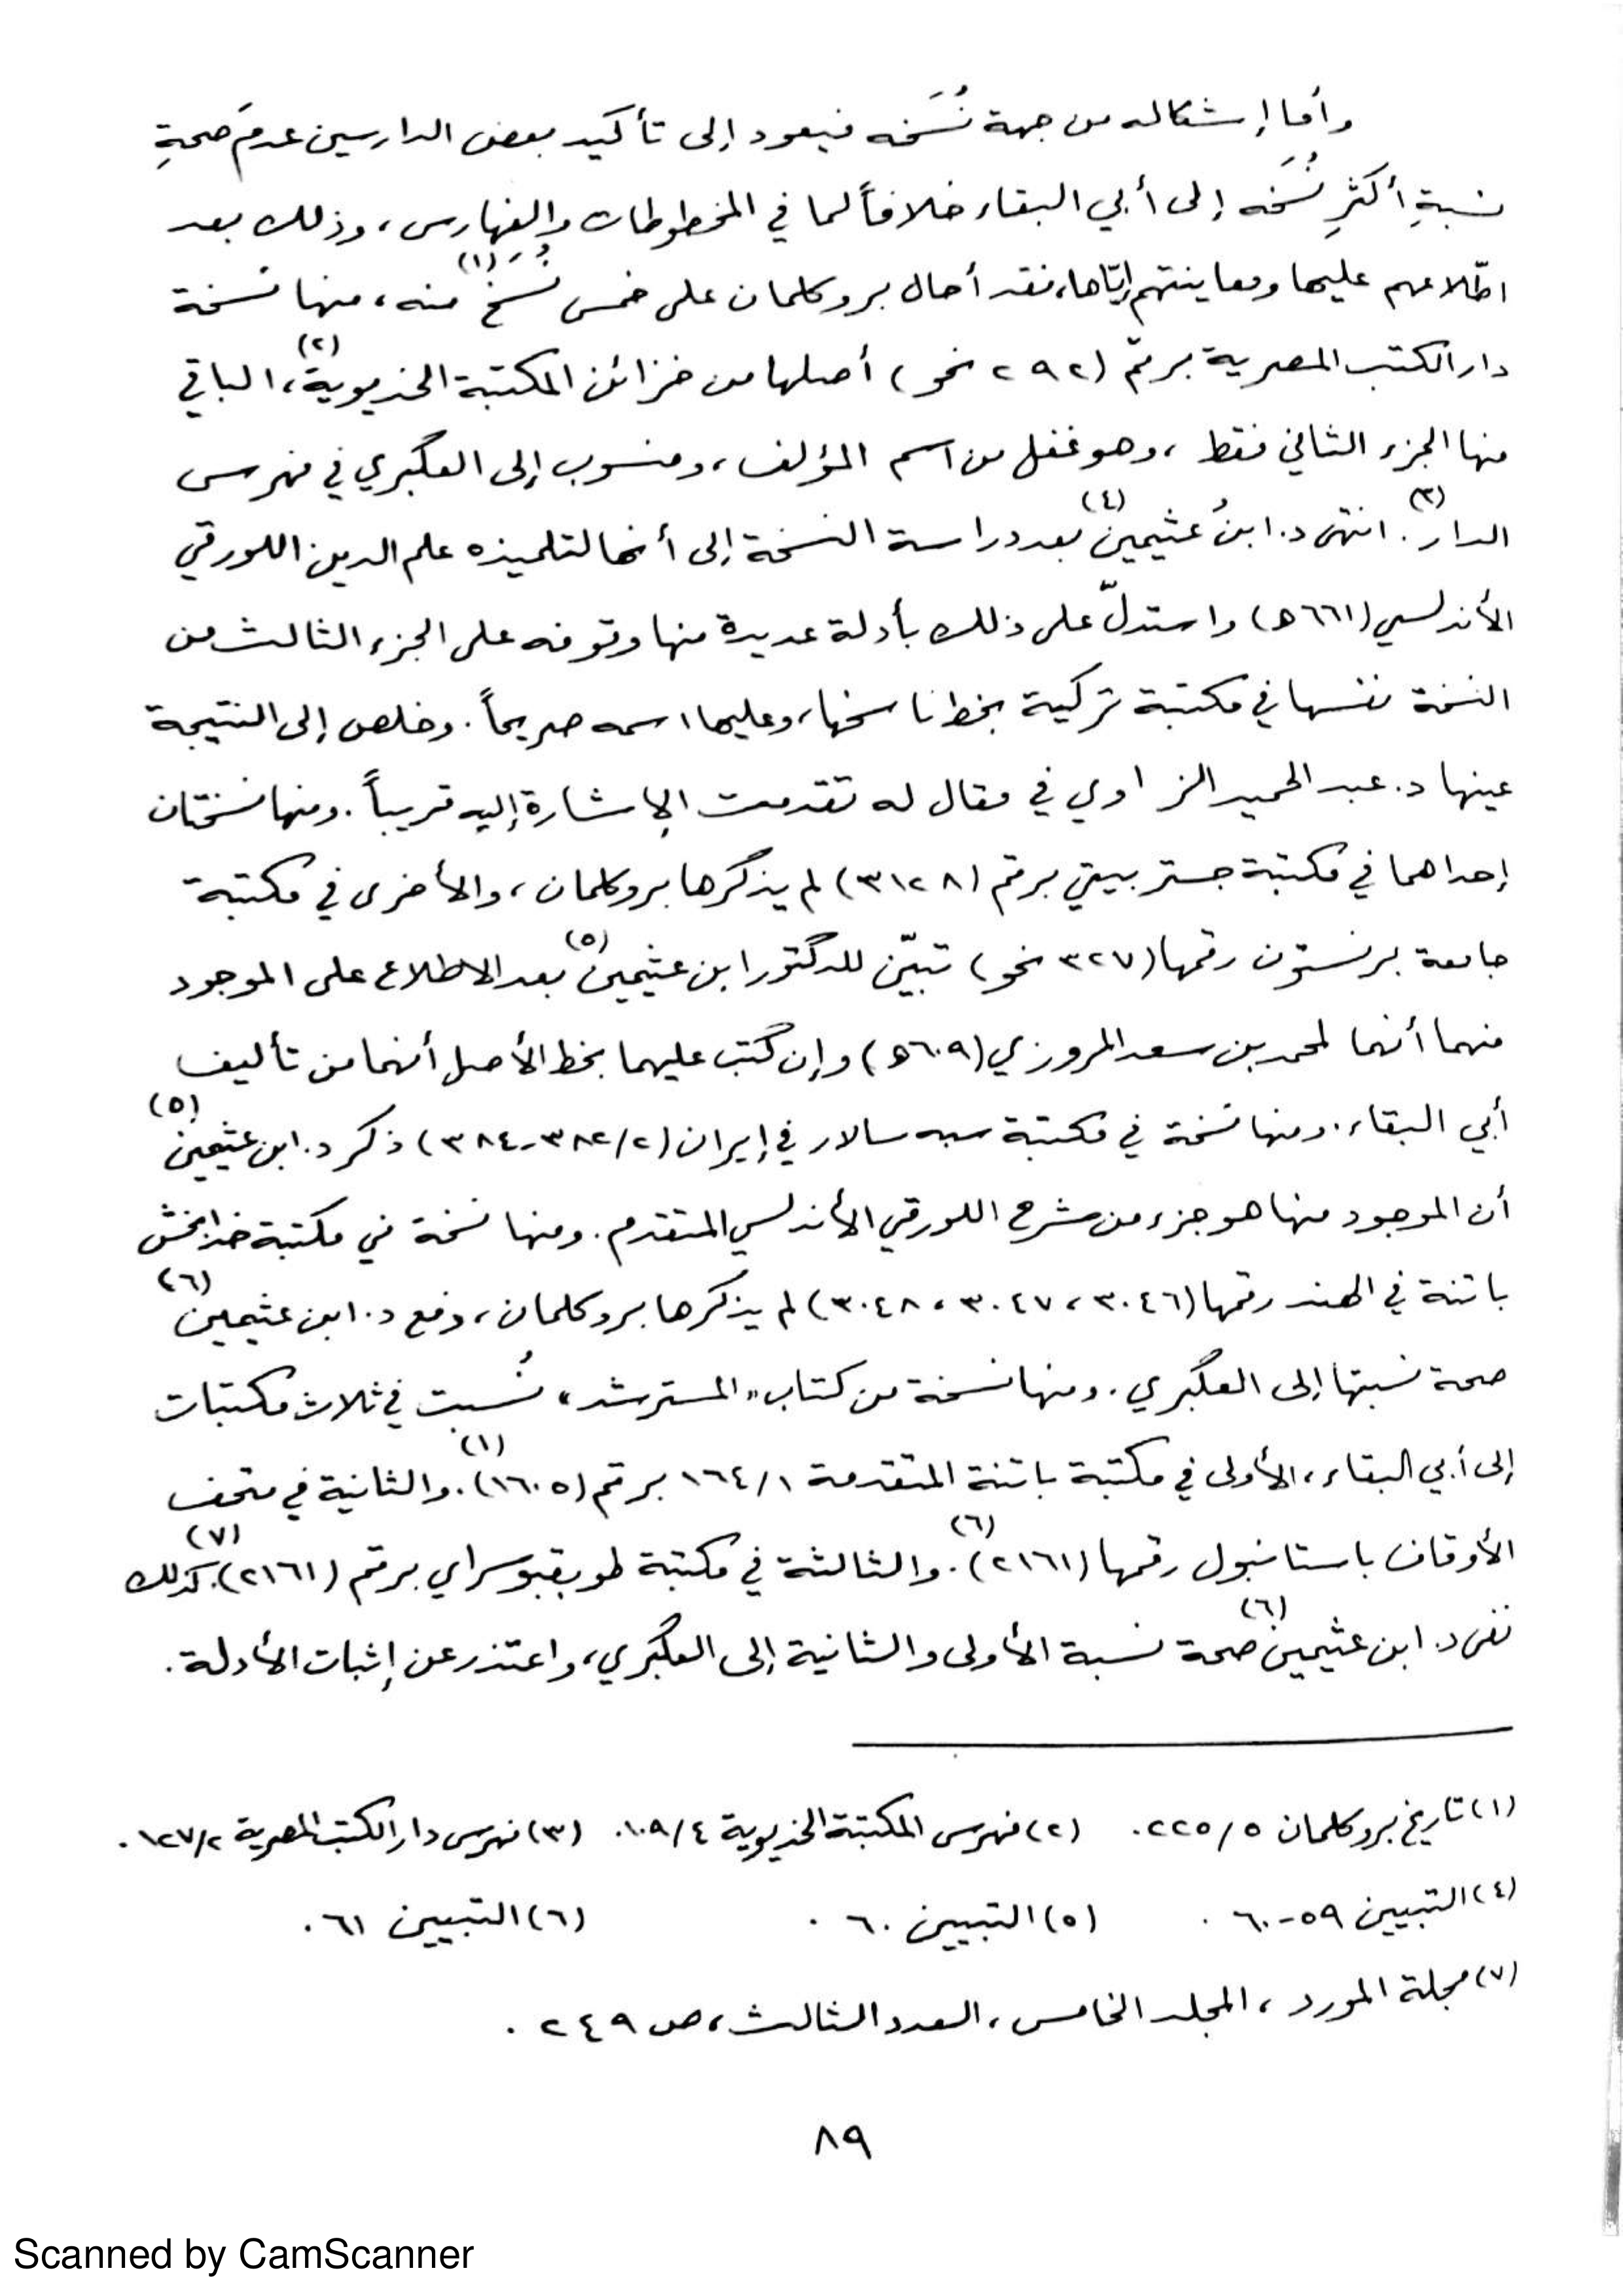 وأما إشكاله من جهة نُسَخه فيعود إلى تأكيد بعض الدارسين عدمَ صحةِ
نسبةِ أكثرِ نُسَخه إلى أبي البقاء خلافاً لما في المخطوطات والفهارس، وذلك بعد
اطّلاعهم عليها ومعاينتهم إيّاها، فقد أحال بروكلمان على خمس نُسَخٍ(١) منه، منها نسخة
دار الكتب المصرية برقم (٢٩٢ نحو) أصلها من خزائن المكتبة الخديوية(٢)، الباقي
منها الجزء الثاني فقط، وهو غفل من اسم المؤلف، ومنسوب إلى العكبري في فهرس
الدار(٣). انتهى د. ابنُ عثيمين(٤) بعد دراسة النسخة إلى أنها لتلميذه علم الدين اللورقي
الأندلسي (٦٦١ه) واستدلّ على ذلك بأدلة عديدة منها وقوفه على الجزء الثالث من
النسخة نفسها في مكتبة تركية بخط ناسخها، وعليها اسمه صريحاً. وخلص إلى النتيجة
عينها د. عبد الحميد الزاوي في مقال له تقدمت الإشارة إليه قريباً. ومنها نسختان
إحداهما في مكتبة جستر بيتي برقم (٣١٢٨) لم يذكرها بروكلمان، والأخرى في مكتبة
جامعة برنستون رقمها (٣٢٧ نحو) تبيّن للدكتور ابن عثيمين(٥) بعد الاطلاع على الموجود
منهما أنهما لمحمد بن سعد المروزي (٦٠٩ه) وإن كُتب عليهما بخط الأصل أنهما من تأليف
أبي البقاء. ومنها نسخة في مكتبة سبه سالار في إيران (٣٨٢/٢-٣٨٤) ذكر د. ابن عثيمين(٥)
أن الموجود منها هو جزء من شرح اللورقي الأندلسي المتقدم. ومنها نسخة في مكتبة خدابخش
باتنة في الهند رقمها (٣٠٤٦، ٣٠٤٧، ٣٠٤٨) لم يذكرها بروكلمان، دفع د. ابن عثيمين(٦)
صحة نسبتها إلى العكبري. ومنها نسخة من كتاب "المسترشد" نُسبت في ثلاث مكتبات
إلى أبي البقاء، الأولى في مكتبة باتنة المتقدمة ١٦٤/١ برقم (١٦٠٥)(١). والثانية في متحف
الأوقاف باستانبول رقمها (٢١٦١)(٦). والثالثة في مكتبة طوبقبوسراي برقم (٢١٦١)(٧). كذلك
نفى د. ابن عثيمين(٦) صحة نسبة الأولى والثانية إلى العكبري، واعتذر عن إثبات الأدلة.
(١) تاريخ بروكلمان ٢٢٥/٥. (٢) فهرس المكتبة الخديوية ١٠٩/٤. (٣) فهرس دار الكتب المصرية ١٢٧/٢.
(٤) التبيين ٥٩-٦٠. (٥) التبيين ٦٠. (٦) التبيين ٦١.
(٧) مجلة المورد، المجلد الخامس، العدد الثالث، ص ٢٤٩.
٨٩
Scanned by CamScanner